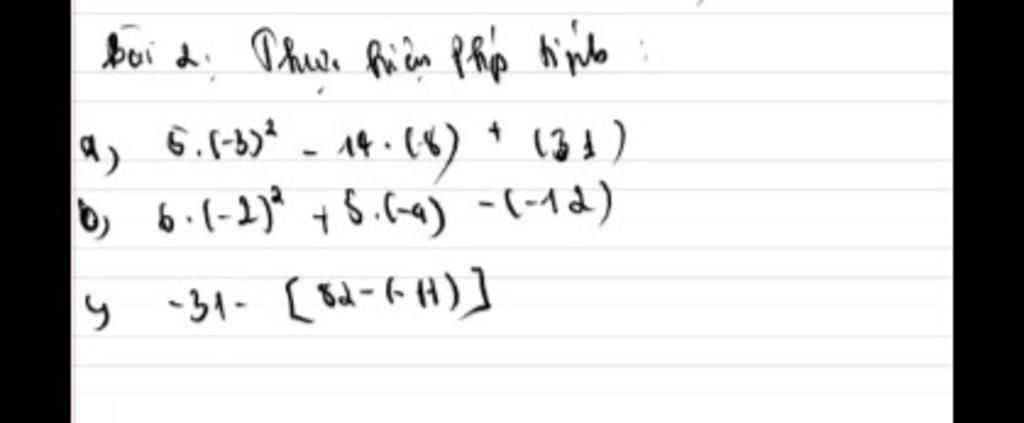 bài 2: Thực hiện phép tính:
a) 5.(-3)² - 14.(-8) + (31)
b) 6.(-2)² + 5.(-4) - (-12)
c) -31 - [82 - (-11)]